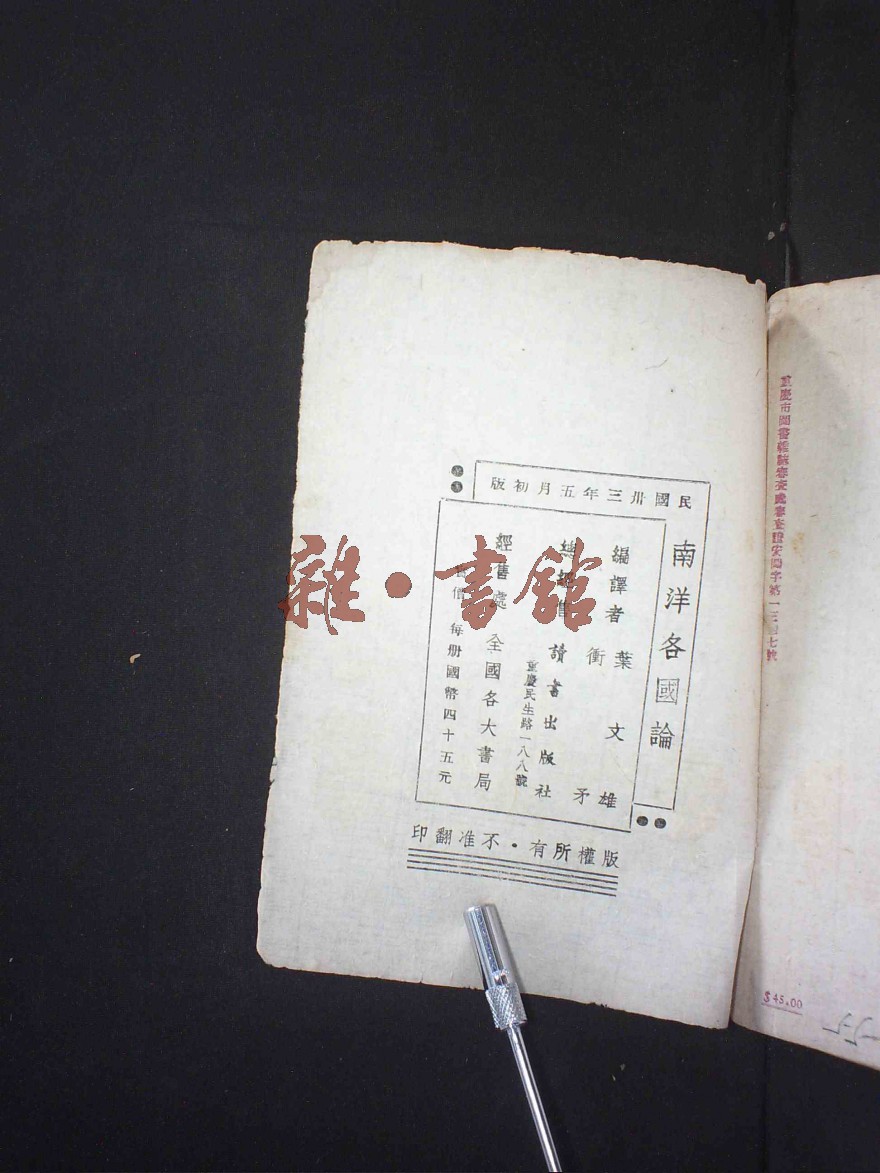 民國卅三年五月初版
南洋各國論
編譯者 葉文雄
衝矛
總經售 讀書出版社
重慶民生路一八八號
經售處 全國各大書局
價 每册國幣四十五元
版權所有・不准翻印
重慶市圖書雜誌審查處審查證安圖字第一三 七號
$45.00
雜・書館